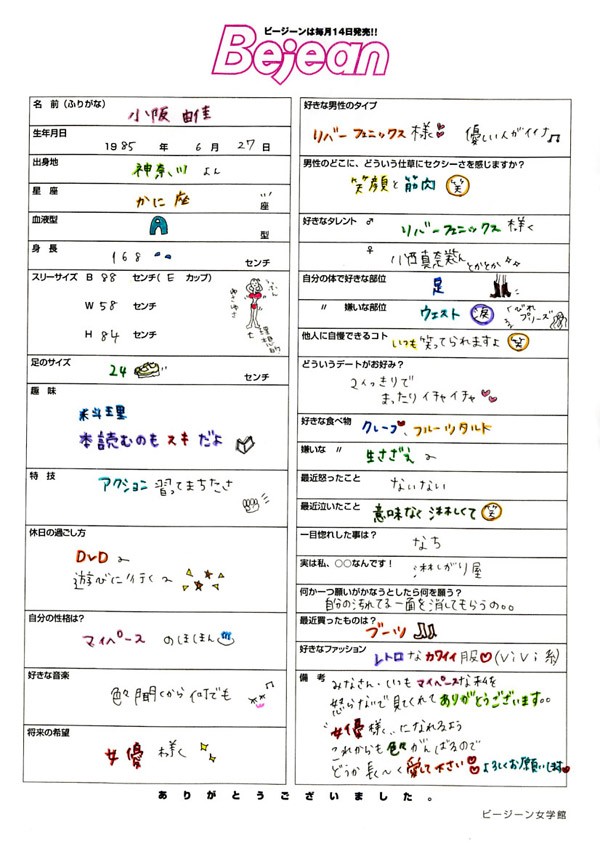 ビージーンは毎月14日発売!!
Bejean
名 前 (ふりがな)
小阪 由佳
生年月日
1985 年 6 月 27 日
出身地
神奈川 よん
星 座
かに座 座
血液型
A 型
身 長
168 センチ
スリーサイズ B 88 センチ( E カップ)
W 58 センチ
H 84 センチ
理想的
足のサイズ
24 センチ
趣 味
料理
本読むのもスキだよ
特 技
アクション 習ってまちたさ
休日の過ごし方
DVD 〜
遊びに行く〜
自分の性格は?
マイペース のほほん
好きな音楽
色々聞くから何でも
将来の希望
女優 様く
好きな男性のタイプ
リバーフェニックス様 優しい人がイイナ♫
男性のどこに、どういう仕草にセクシーさを感じますか?
笑顔と筋肉 笑
好きなタレント ♂
リバーフェニックス様く
♀
小西真奈美さん とかとか
自分の体で好きな部位
足
〃 嫌いな部位
ウェスト 涙 くびれ プリーズ
他人に自慢できるコト
いつも笑ってられますよ 笑
どういうデートがお好み?
2人っきりで
まったりイチャイチャ
好きな食べ物
クレープ フルーツタルト
嫌いな 〃
生さざえ〜
最近怒ったこと
ないない
最近泣いたこと
意味なく淋しくて 笑
一目惚れした事は?
なち
実は私、○○なんです!
淋しがり屋
何か一つ願いがかなうとしたら何を願う?
自分の汚れてる一面を消してもらうの。。
最近買ったものは?
ブーツ
好きなファッション
レトロなカワイイ服♡(ViVi系)
備 考
みなさん、いつもマイペースな私を
怒らないで見てくれてありがとうございます。。
女優様く..になれるよう
これからも色々がんばるので
どうか長〜く愛して下さい よろしくお願いします
ありがとうございました。
ビージーン女学館